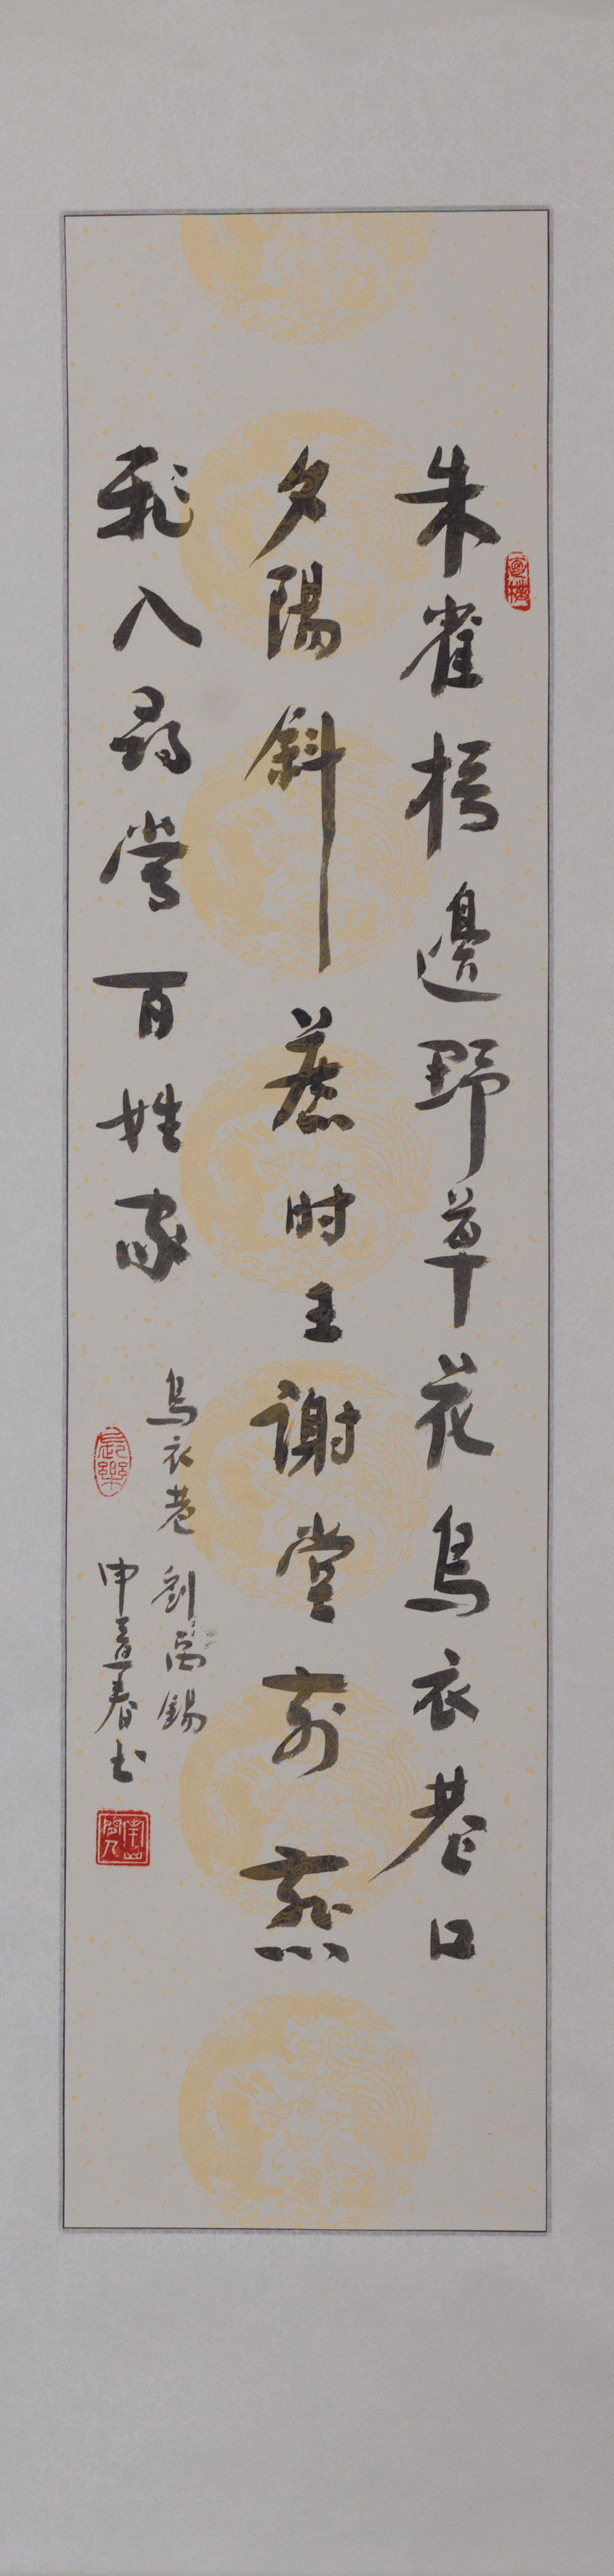 朱雀橋邊野草花烏衣巷口
夕陽斜舊时王謝堂前燕
飛入尋常百姓家
烏衣巷 劉禹錫
申春书